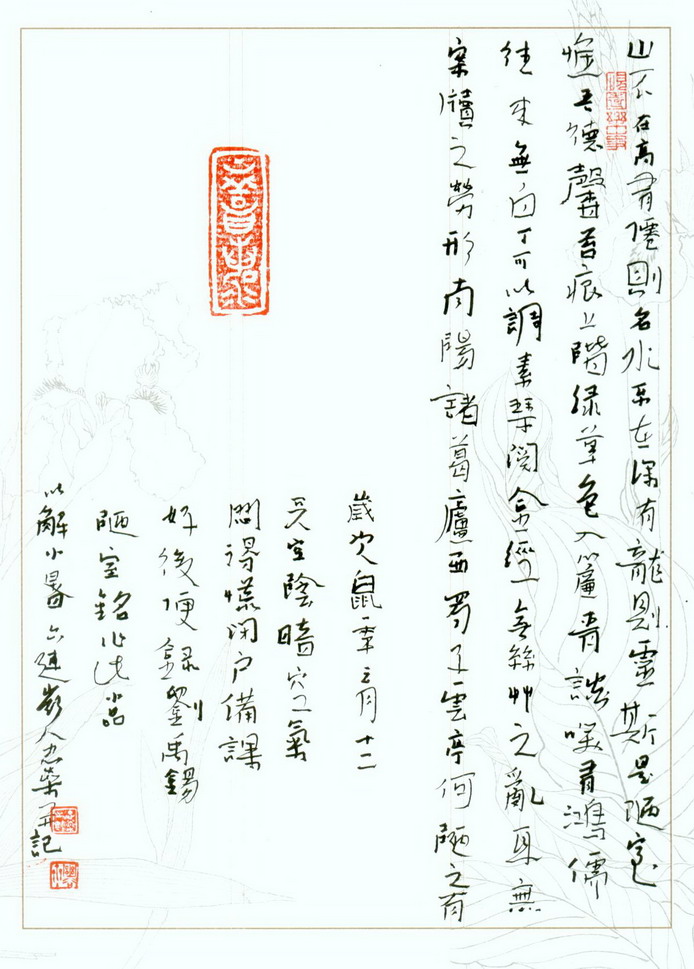 山不在高有僊則名水不在深有龍則靈斯是陋室
惟吾德馨苔痕上階綠草色入簾青談笑有鴻儒
往來無白丁可以調素琴閱金經無絲竹之亂耳無
案牘之勞形南陽諸葛廬西蜀子雲亭何陋之有
歲次鼠年六月十二
天空陰暗空氣
悶得慌閉戶備課
好後便錄劉禹錫
陋室銘作此小品
以解小暑六連嶺人忠榮并記